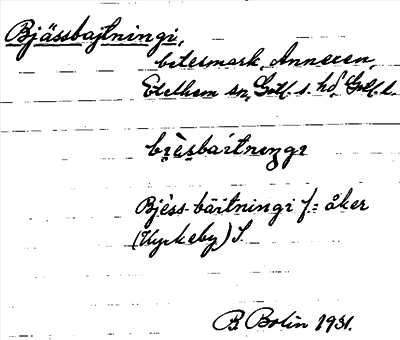 Bjässbajtningi,
betesmark, Annexen,
Etelhem sn, Gotl. s. hd, Gotl. l.
bi̯èsbai̯tnıngı
Bjèss-bäitningi f = åker
(Hyrkeby) S.
B. Bolin 1931.